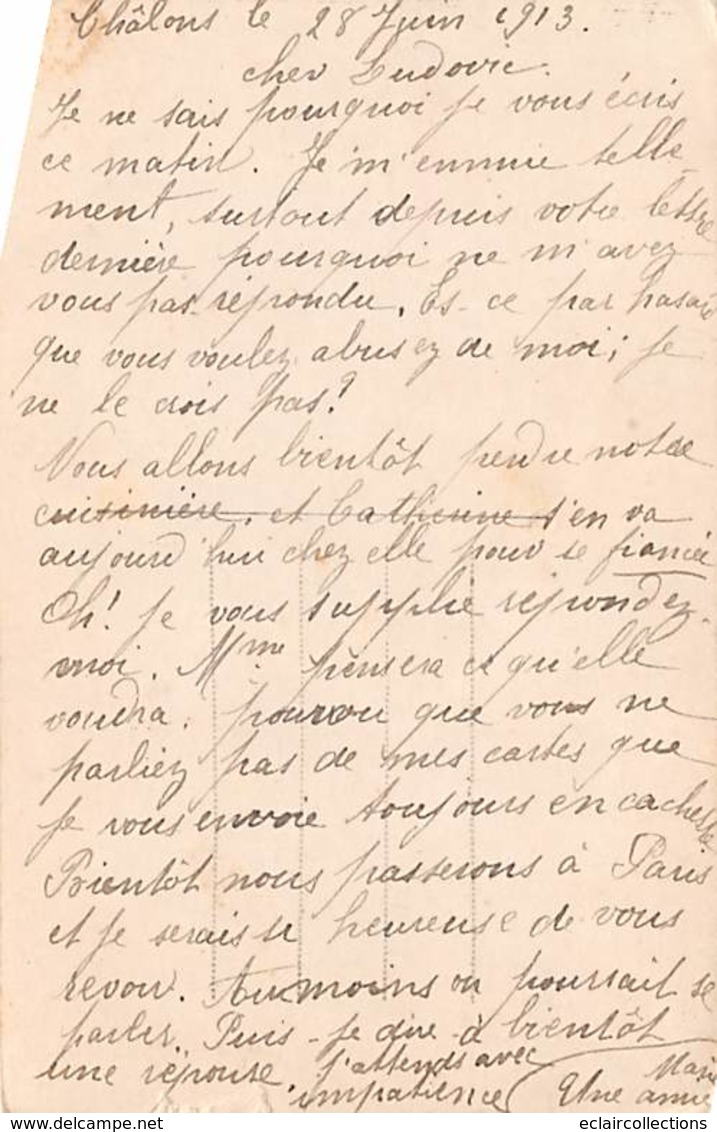 Châlons le 28 Juin 1913.
cher Ludovic.
Je ne sais pourquoi je vous écris
ce matin. Je m'ennuie telle-
ment, surtout depuis votre lettre
dernière pourquoi ne m'avez
vous pas répondu. Es-ce par hasard
que vous voulez abusez de moi; je
ne le crois pas?
Nous allons bientôt perdre notre
cuisinière, et Catherine s'en va
aujourd'hui chez elle pour se fiancée
Oh! je vous supplie répondez-
moi. Mme pensera ce qu'elle
voudra. pourvu que vous ne
parliez pas de mes cartes que
je vous envoie toujours en cachette
Bientôt nous passerons à Paris
et je serais si heureuse de vous
revoir. Au moins on pourrait se
parler. Puis-je dire à bientôt
une réponse. j'attends avec
impatience Une amie
Marie
eclaircollections